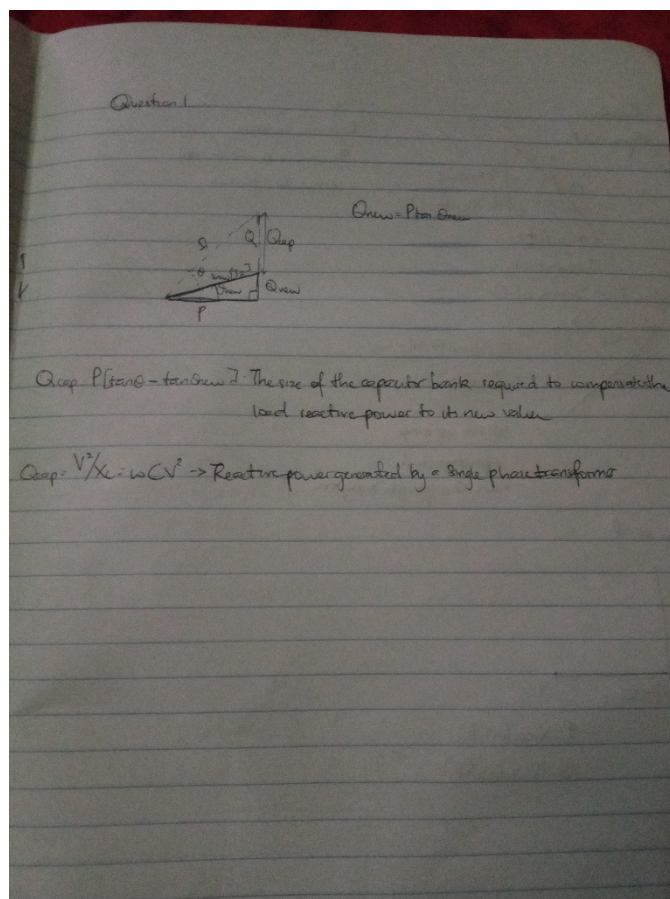 Question 1
Qnew = P tan θnew
S
Q Qcap
θ
θnew Qnew
P
Qcap = P[tanθ - tanθnew] · The size of the capacitor bank required to compensate the
load reactive power to its new value
Qcap = V²/Xc = ωCV² -> Reactive power generated by a single phase transformer